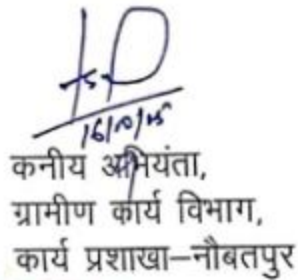 16/10/25
कनीय अभियंता,
ग्रामीण कार्य विभाग,
कार्य प्रशाखा–नौबतपुर